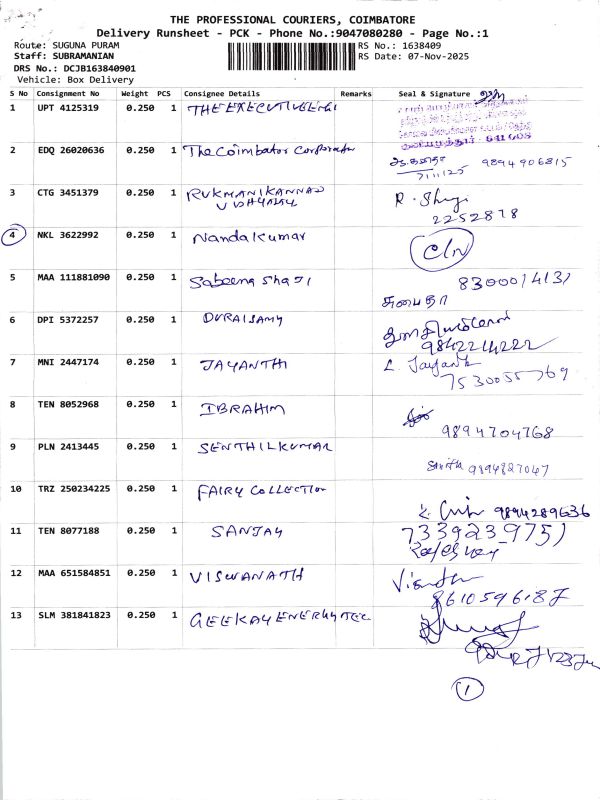 THE PROFESSIONAL COURIERS, COIMBATORE
Delivery Runsheet - PCK - Phone No.:9047080280 - Page No.:1
Route: SUGUNA PURAM
RS No.: 1638409
Staff: SUBRAMANIAN
RS Date: 07-Nov-2025
DRS No.: DCJB163840901
Vehicle: Box Delivery
S No Consignment No Weight PCS Consignee Details Remarks Seal & Signature
1 UPT 4125319 0.250 1
641 008
2 EDQ 26020636 0.250 1 The Coimbator Corporator
7/11/25 9894906815
3 CTG 3451379 0.250 1 RUKMANIKANNAN
2252878
4 NKL 3622992 0.250 1 Nandakumar
5 MAA 111881090 0.250 1 Sabeena Shaji 8300014131
சுபைதா
6 DPI 5372257 0.250 1 DURAISAMY
9842214222
7 MNI 2447174 0.250 1 JAYANTHI L. Jayanthi
7530055769
8 TEN 8052968 0.250 1 IBRAHIM
9894704768
9 PLN 2413445 0.250 1 SENTHILKUMAR 9894827047
10 TRZ 250234225 0.250 1 FAIRY COLLECTION
9894289636
11 TEN 8077188 0.250 1 SANJAY 7339239751
12 MAA 651584851 0.250 1 VISWANATH
8610596187
13 SLM 381841823 0.250 1 GEEKAY ENERGYTEC
1